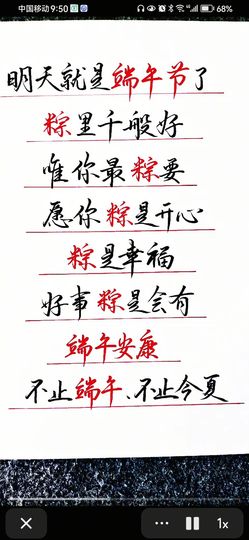 中国移动 9:50 68%
明天就是端午节了
粽里千般好
唯你最粽要
愿你粽是开心
粽是幸福
好事粽是会有
端午安康
不止端午、不止今夏
1x